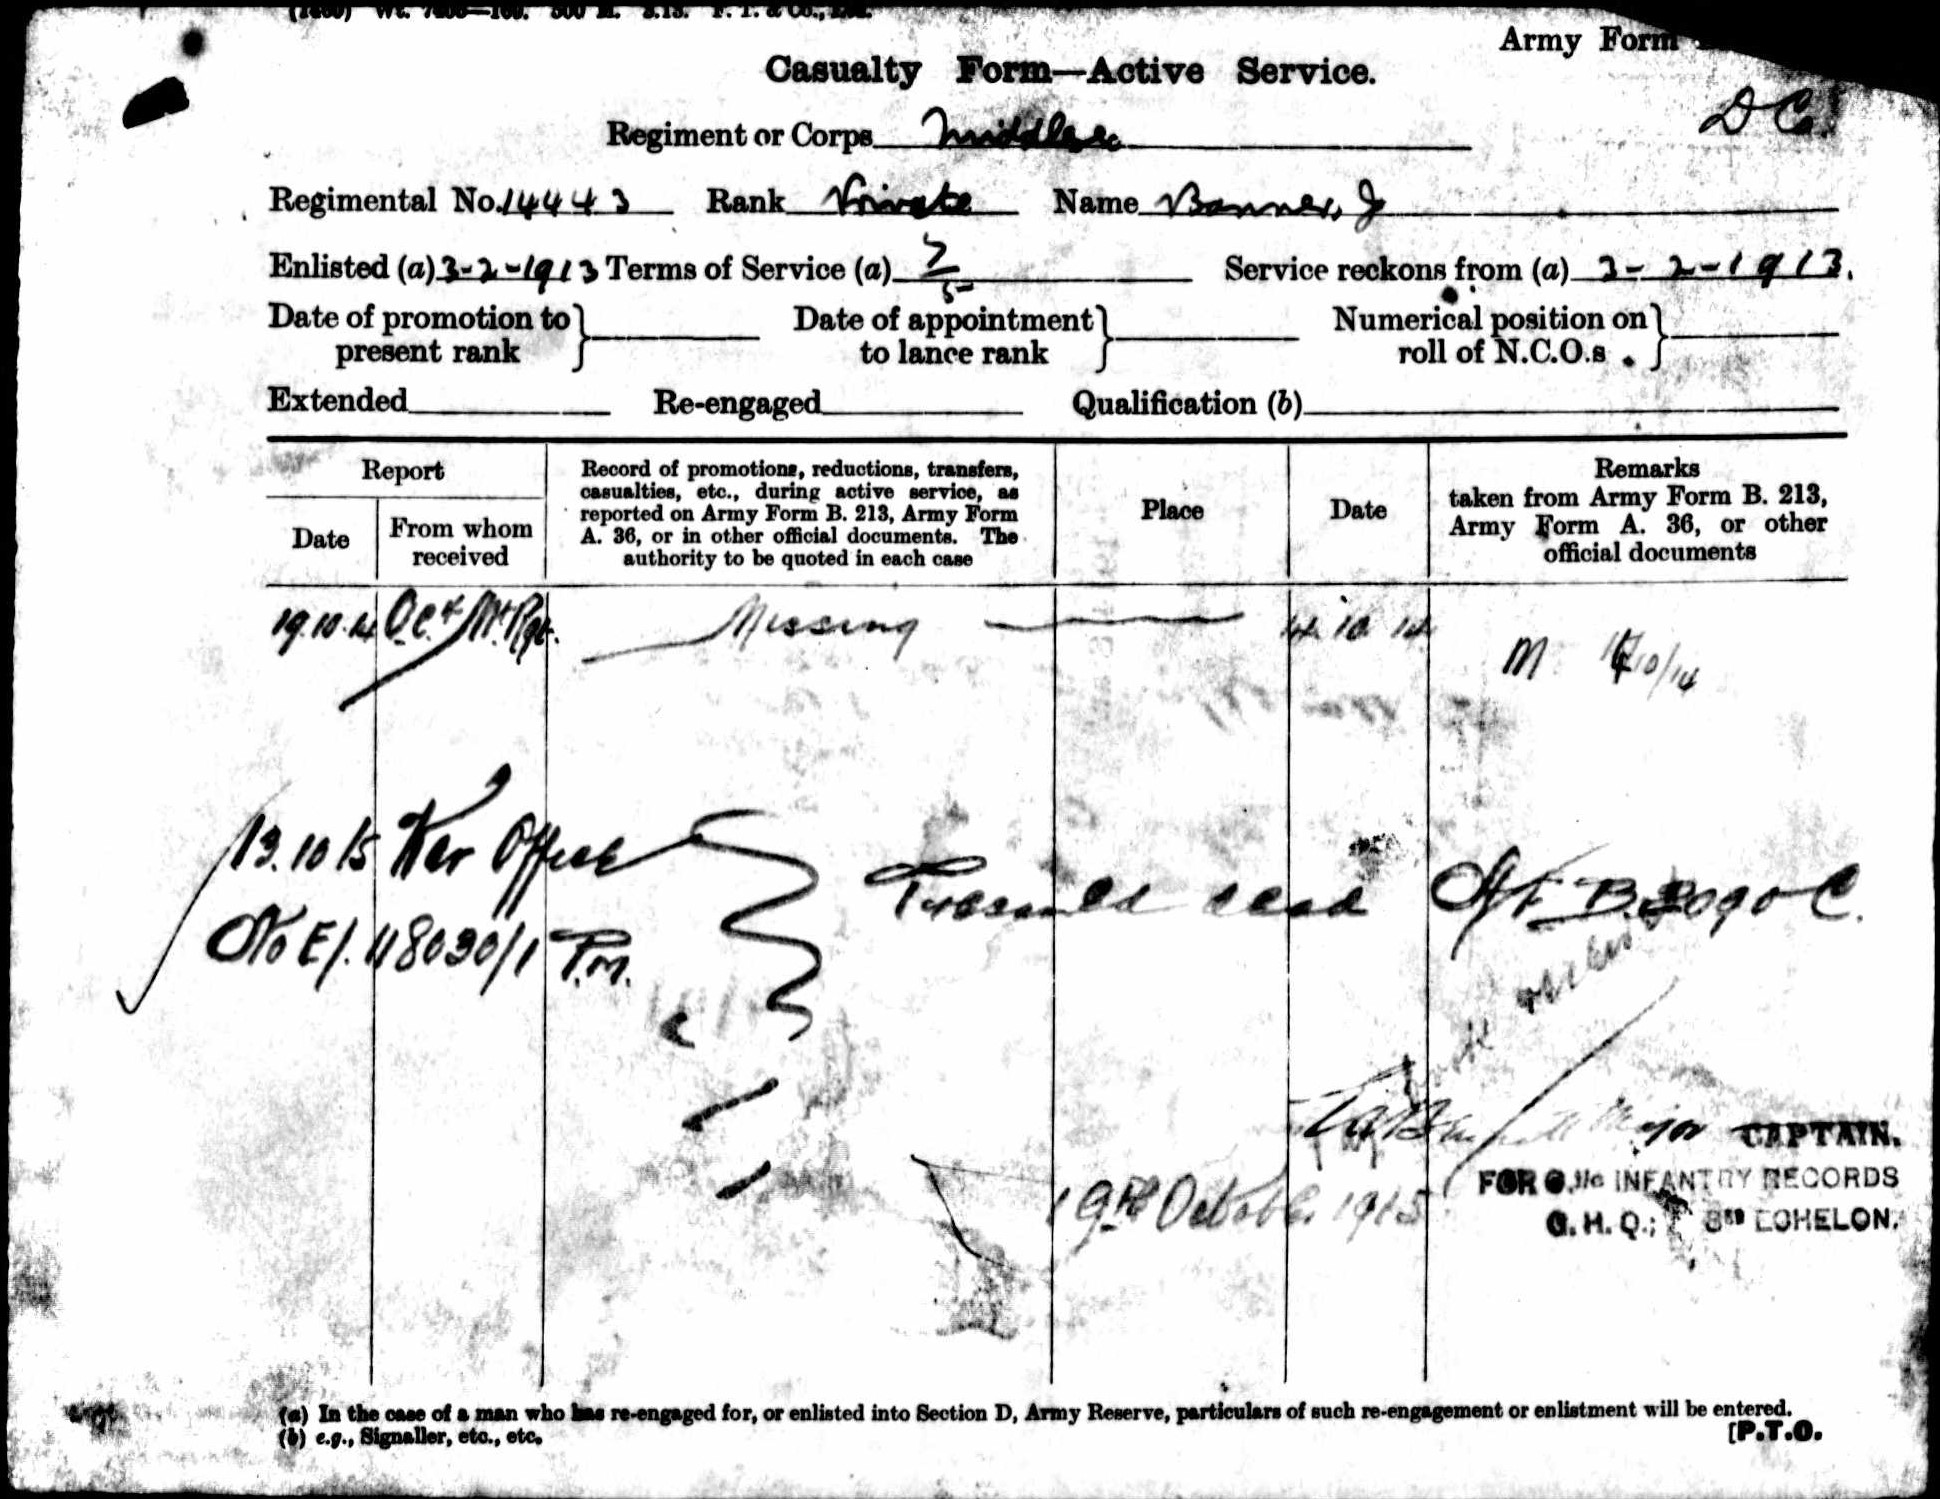 Army Form
Casualty Form—Active Service.
D Co.
Regiment or Corps Middlesex
Regimental No. 14443 Rank Private Name Banner, J
Enlisted (a) 3-2-1913 Terms of Service (a) 7/5 Service reckons from (a) 3-2-1913.
Date of promotion to present rank } Date of appointment to lance rank } Numerical position on roll of N.C.O.s }
Extended Re-engaged Qualification (b)
Report
Date
From whom received
Record of promotions, reductions, transfers,
casualties, etc., during active service, as
reported on Army Form B. 213, Army Form
A. 36, or in other official documents. The
authority to be quoted in each case
Place
Date
Remarks
taken from Army Form B. 213,
Army Form A. 36, or other
official documents
19.10.14 O.C. 4 Mx Rgt. Missing 14 10 14
M 10/14
13.10.15 War Office Presumed dead A.F. B. 2090 C.
No E/. 118030/1 P.M.
Major CAPTAIN.
19th October 1915 FOR O. i/c INFANTRY RECORDS
G. H. Q.; 3RD ECHELON.
(a) In the case of a man who has re-engaged for, or enlisted into Section D, Army Reserve, particulars of such re-engagement or enlistment will be entered.
(b) e.g., Signaller, etc., etc.
[P.T.O.